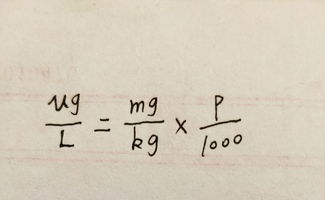 µg/L = mg/kg × P/1000